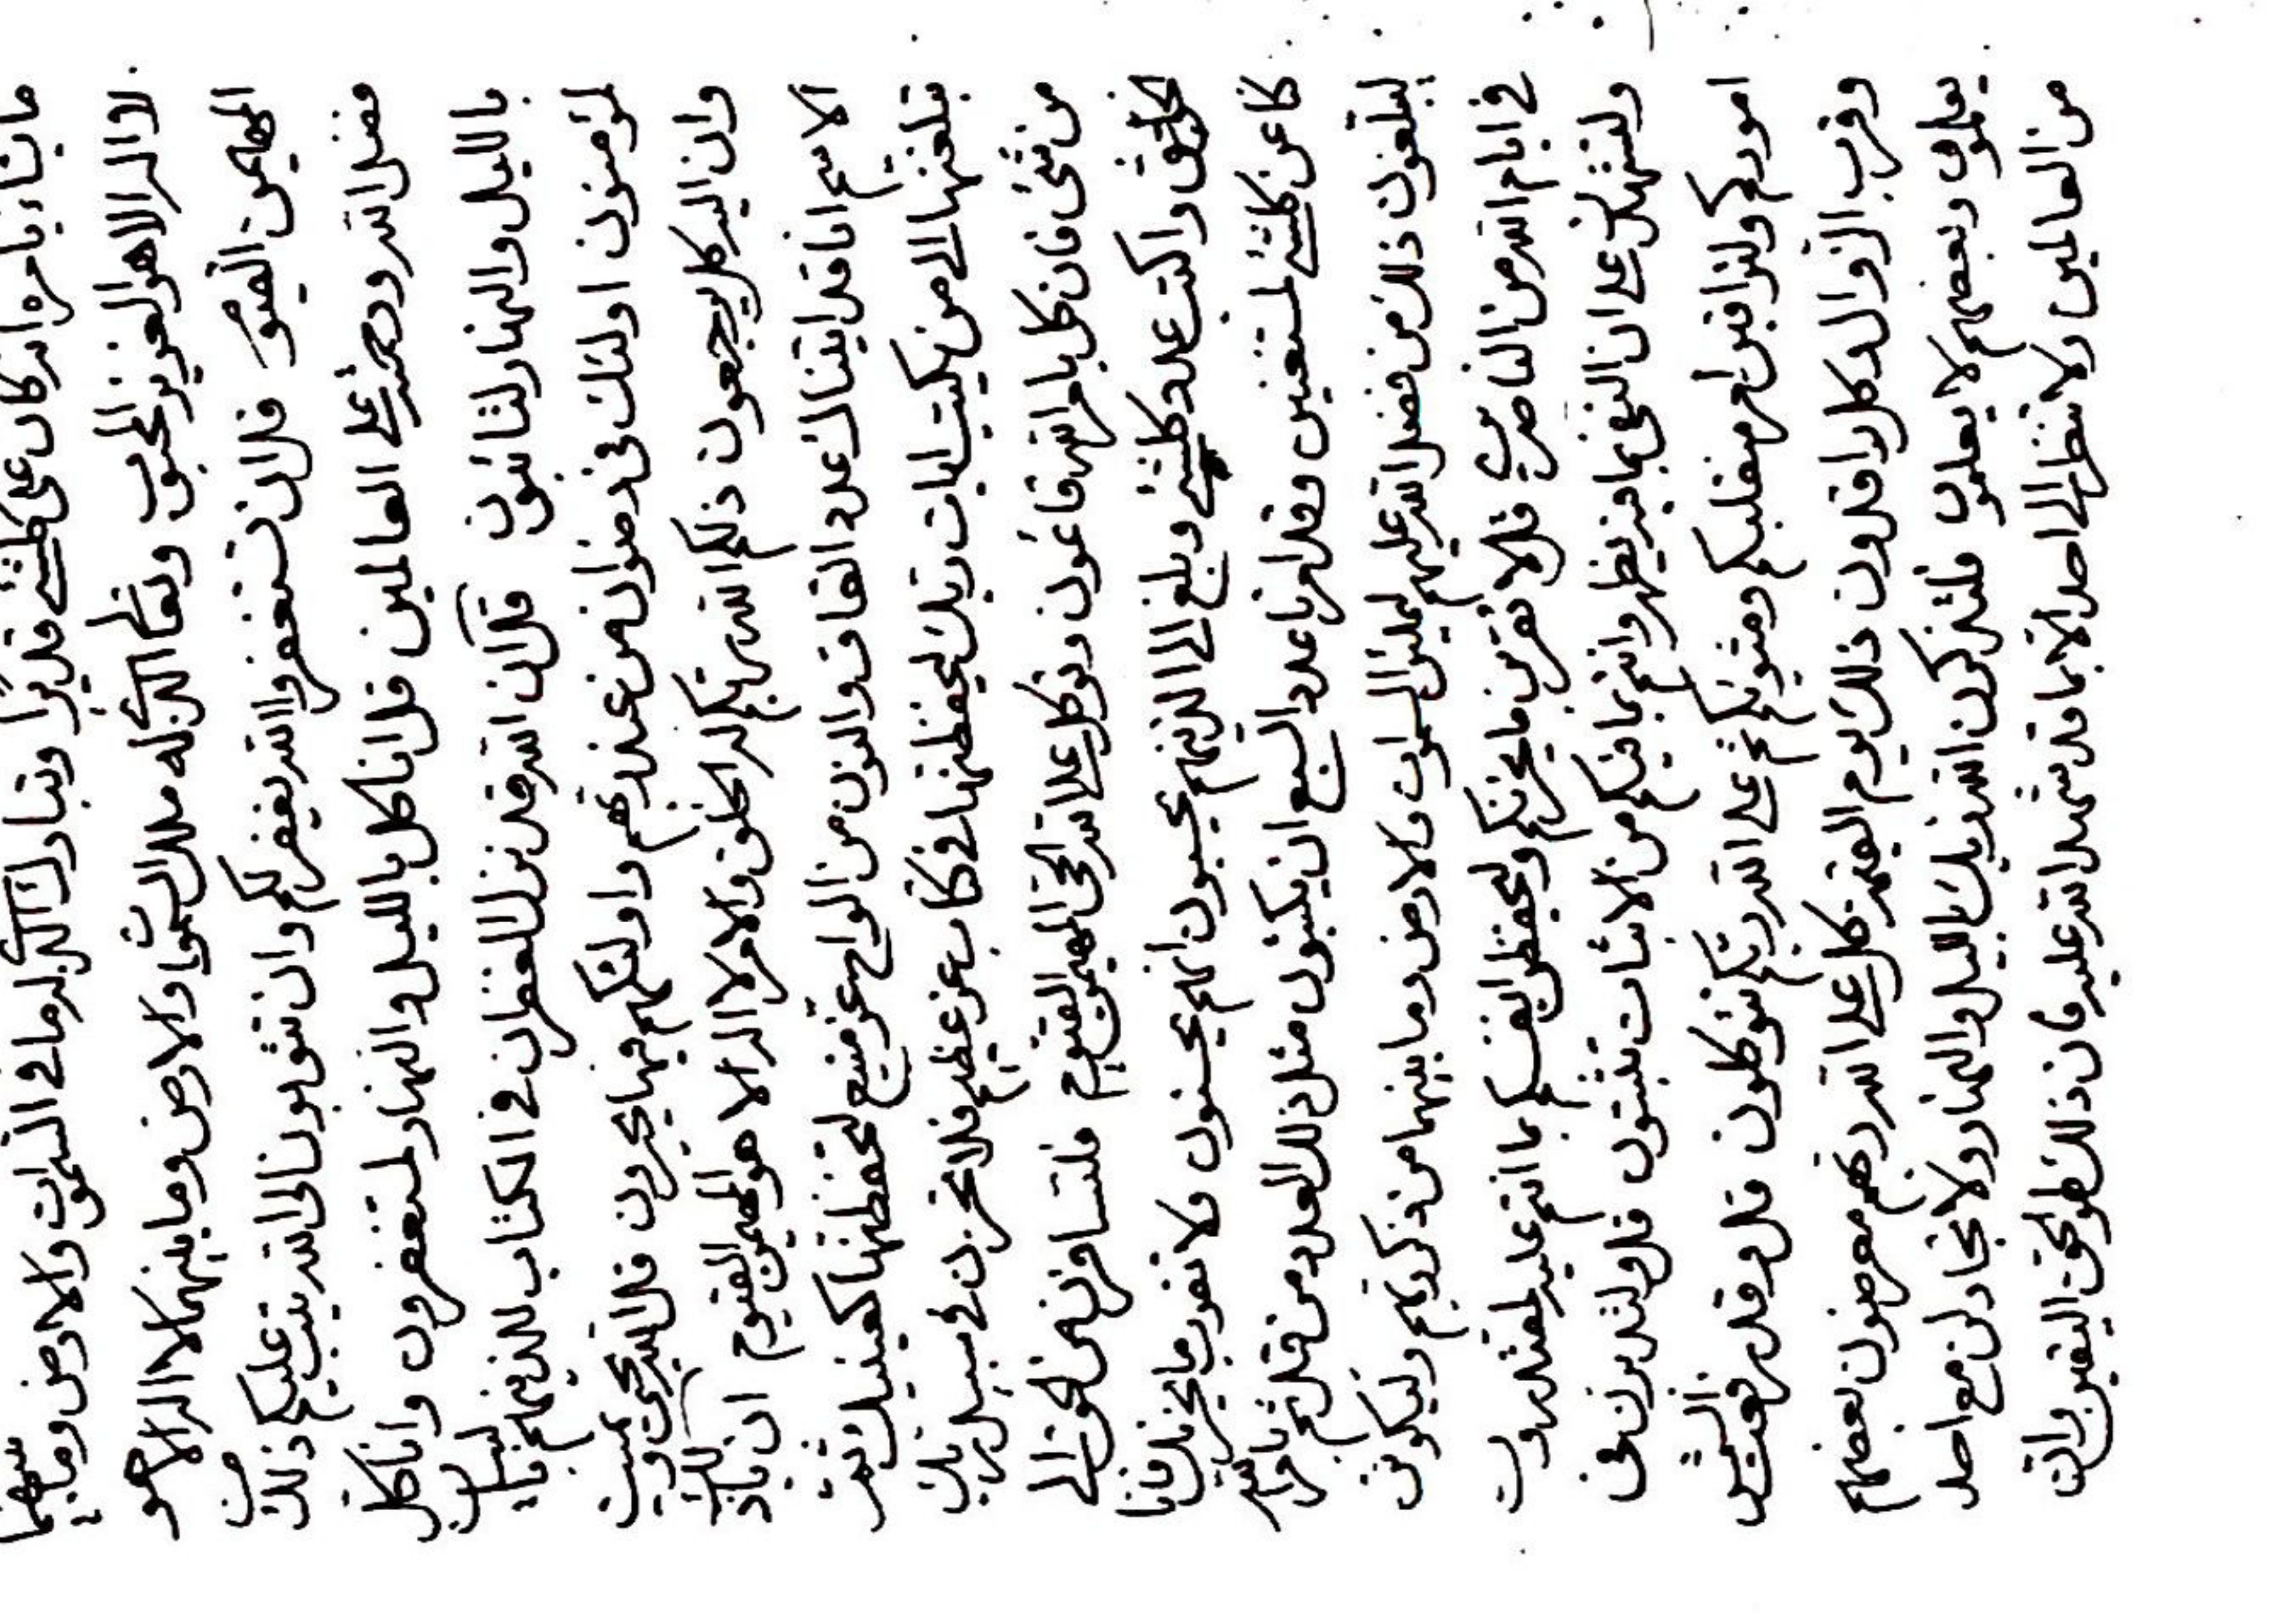 ما يشاء بامره انه كان على كلشئ قديرا وتبارك الذي له ما في السموات والارض وما بينهما
لا اله الا هو العزيز المحبوب وتعالى الذي له ملك السموات والارض وما بينهما لا اله الا هو
المهيمن القيوم قل ان تستغفروا الله يغفر لكم وان تتوبون الى الله يتب عليكم ذلك من
فضل الله ورحمته على العالمين قل انا كل بالليل والنهار لمستغفرون وانا كل
بالليل والنهار لتائبون قل ان الله قد نزل الغفران في الكتاب للذينهم بايات الله
لمؤمنون اولئك في رضوان من عند ربهم واولئكهم فيها يحبرون قل الله يحيي ويميت
وان اليه كل يرجعون ذلكم الله ربكم له الخلق والامر لا اله الا هو المهيمن القيوم ان يا ذلك
الاسم انا قد اتيناك عدد القاف والنون من الواح عز منيع لتحفظنها كعينيك وثم
بتلغنها الى من يكتب ايات ربك ليحفظنها في كتاب عز عظيم فلا تحزن في سبيل ربك
من شئ فان كل بامر الله قائمون وتوكل على الله الحي المهيمن القيوم فلتسافرن من نحو الى
واكتب عدد كلشئ وبلغ الى الذينهم يحبون انهم يحسنون ولا ما يحزنك فانا
كنا عن كلشئ لمستغنين وقد امرنا عدد السبع ان يكتبون مثل ذلك العدد من قبل ثم بامر الله
ليبلغون ذلك من فضل الله عليهم ليملئوا السموات والارض وما بينهما من ذكر ربهم وليكونن
في ايام الله من الناصرين قل لا تقربن ما يحزنكم ولتحفظوا انفسكم بما انتم عليه لمقتدرون
ولتشهدن على ان النفي بما فيه يظهر وانتم بما فيكم من الاثبات تثبتون قل ولتدبرن في
اموركم ولتراقبن امر منقلبكم ومثويكم ثم على الله ربكم تتوكلون قل وقد رفعت الشمس
وقرب الزوال وكل راقدون ذلك يوم القيمة كل على الله ربهم معرضون بعضهم
يعلمون وبعضهم لا يعلمون فلتذكرن الله ربك بالليل والنهار ولا تجادلن مع احد
من العالمين ولا تنظر الى احد الا بما قد شهد الله عليه فان ذلك لهو الحق اليقين وانت